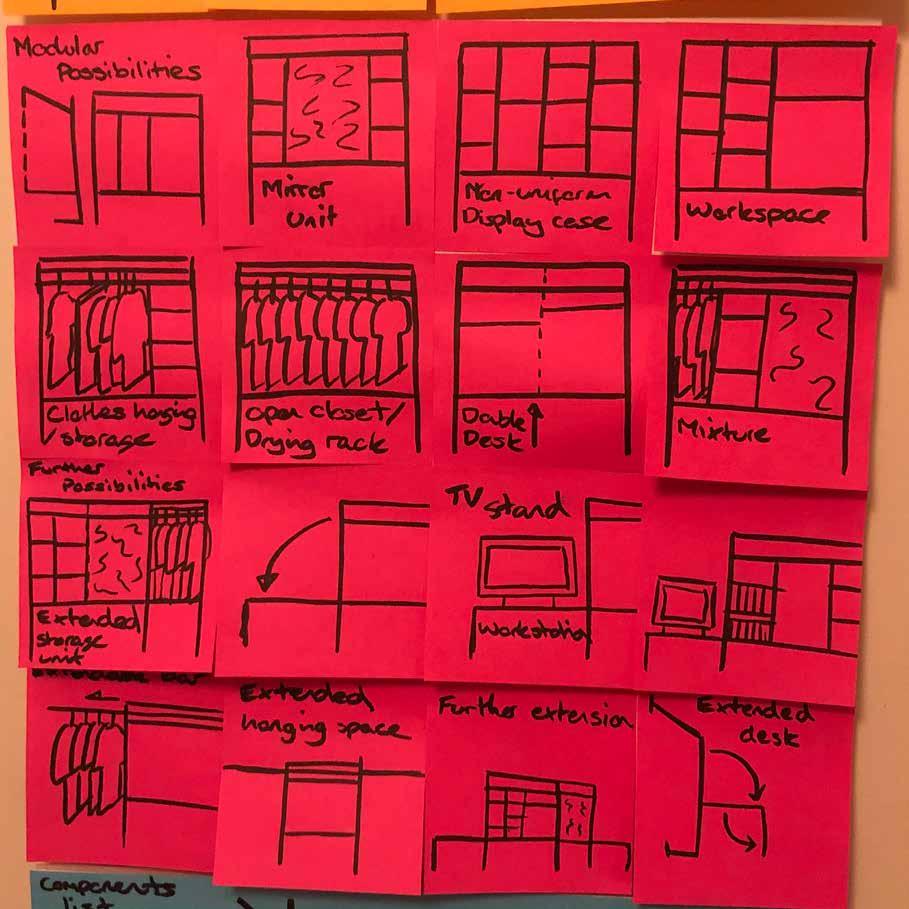 Modular
Possibilities
Mirror
Unit
Non-uniform
Display case
Workspace
Clothes hanging
/storage
Open closet/
Drying rack
Double
Desk
Mixture
Further
Possibilities
Extended
storage
unit
TV stand
Workstation
bar
Extended
hanging space
Further extension
Extended
desk
Components
list